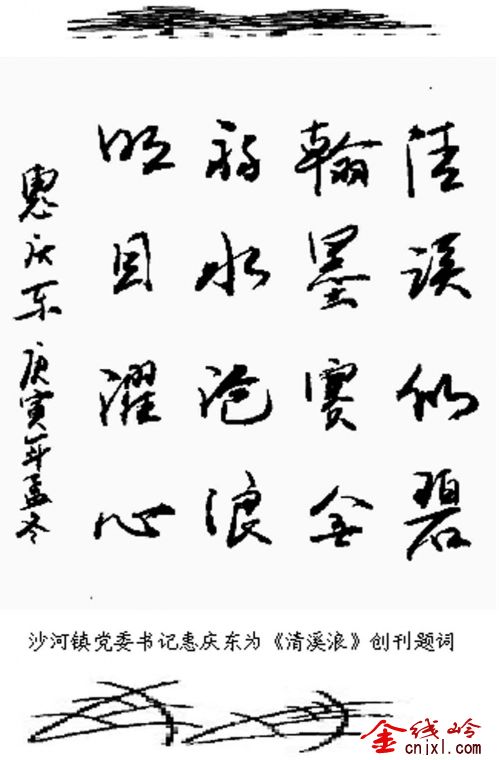 清溪似碧
翰墨赛金
福水沧浪
明目濯心
惠庆东 庚寅年孟冬
沙河镇党委书记惠庆东为《清溪浪》创刊题词
金线岭
cnjxl.com